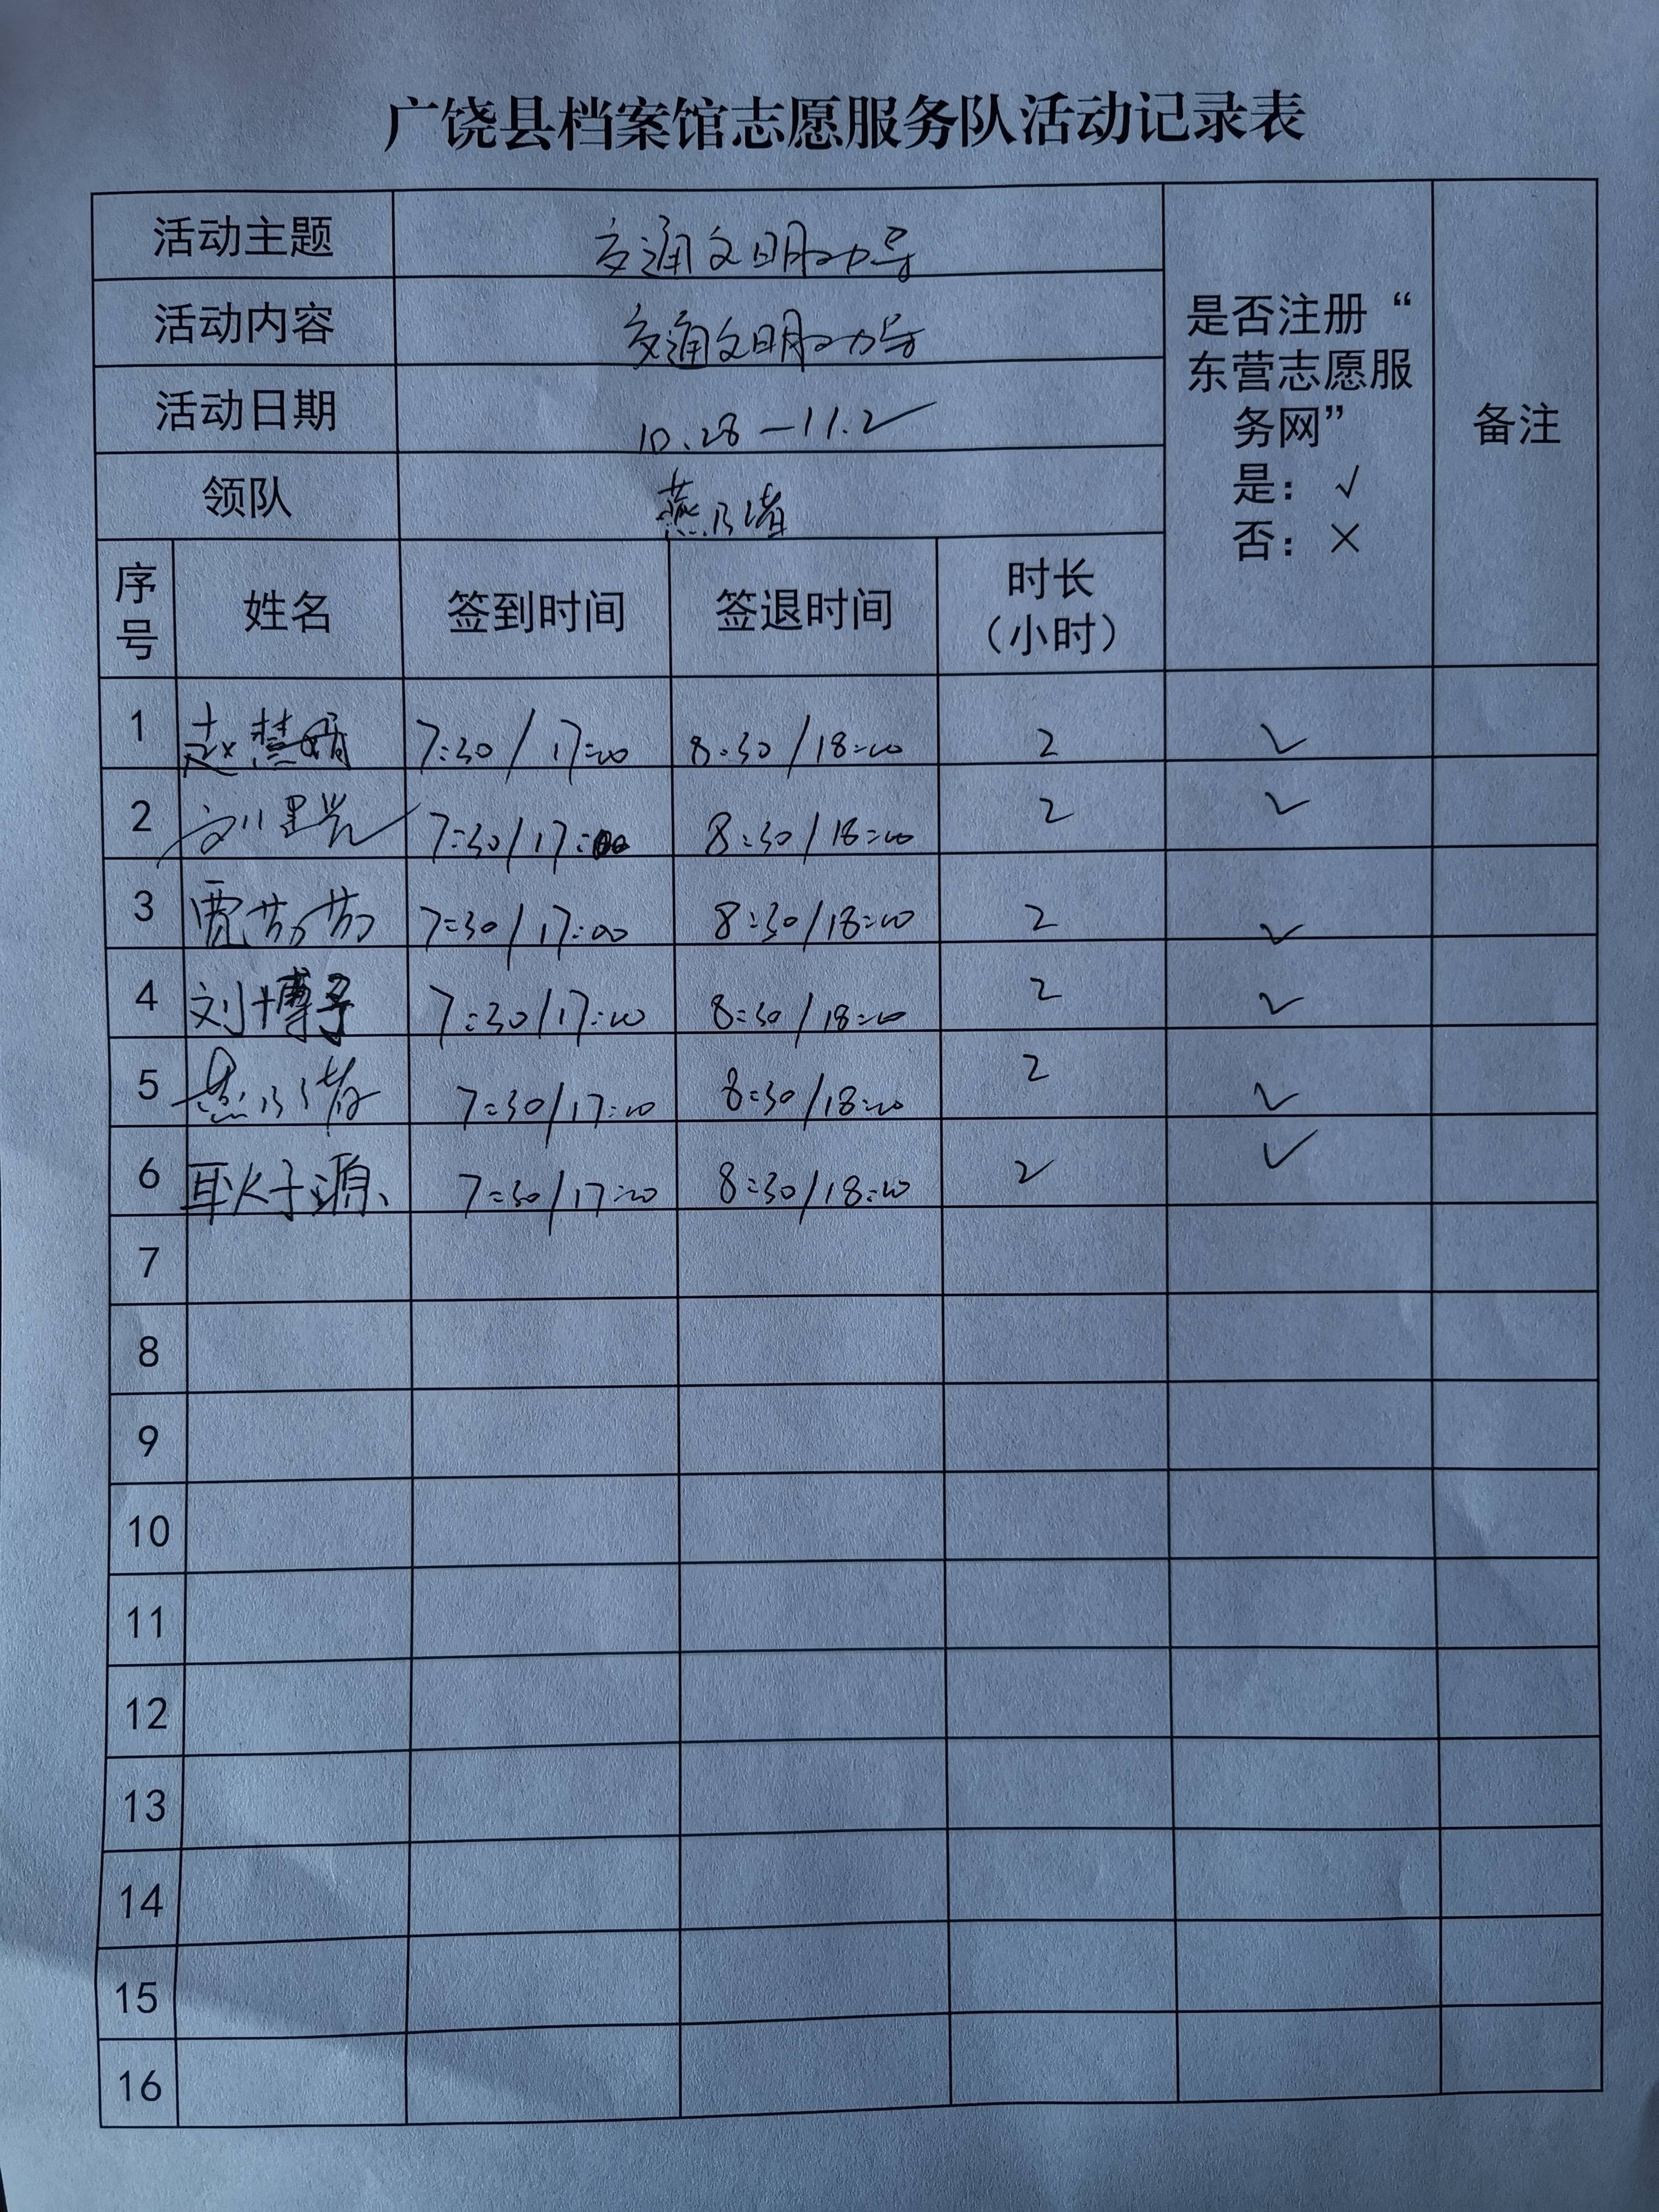 广饶县档案馆志愿服务队活动记录表
活动主题 交通文明劝导
活动内容 交通文明劝导
活动日期 10.28—11.2
领队 燕乃绪
是否注册“
东营志愿服
务网”
是：√
否：×
备注
序号 姓名 签到时间 签退时间 时长（小时）
1 赵慧娟 7:30/17:00 8:30/18:00 2 √
2 刘 7:30/17:00 8:30/18:00 2 √
3 贾芳芳 7:30/17:00 8:30/18:00 2 √
4 刘博 7:30/17:00 8:30/18:00 2 √
5 燕乃绪 7:30/17:00 8:30/18:00 2 √
6 耿子源 7:30/17:00 8:30/18:00 2 √
7
8
9
10
11
12
13
14
15
16